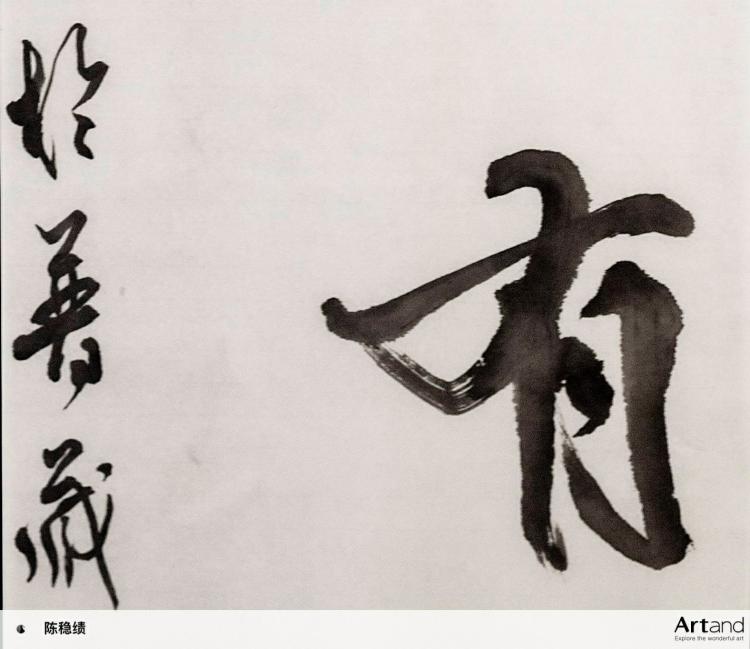 有
於普藏
陈稳绩
Artand
Explore the wonderful art